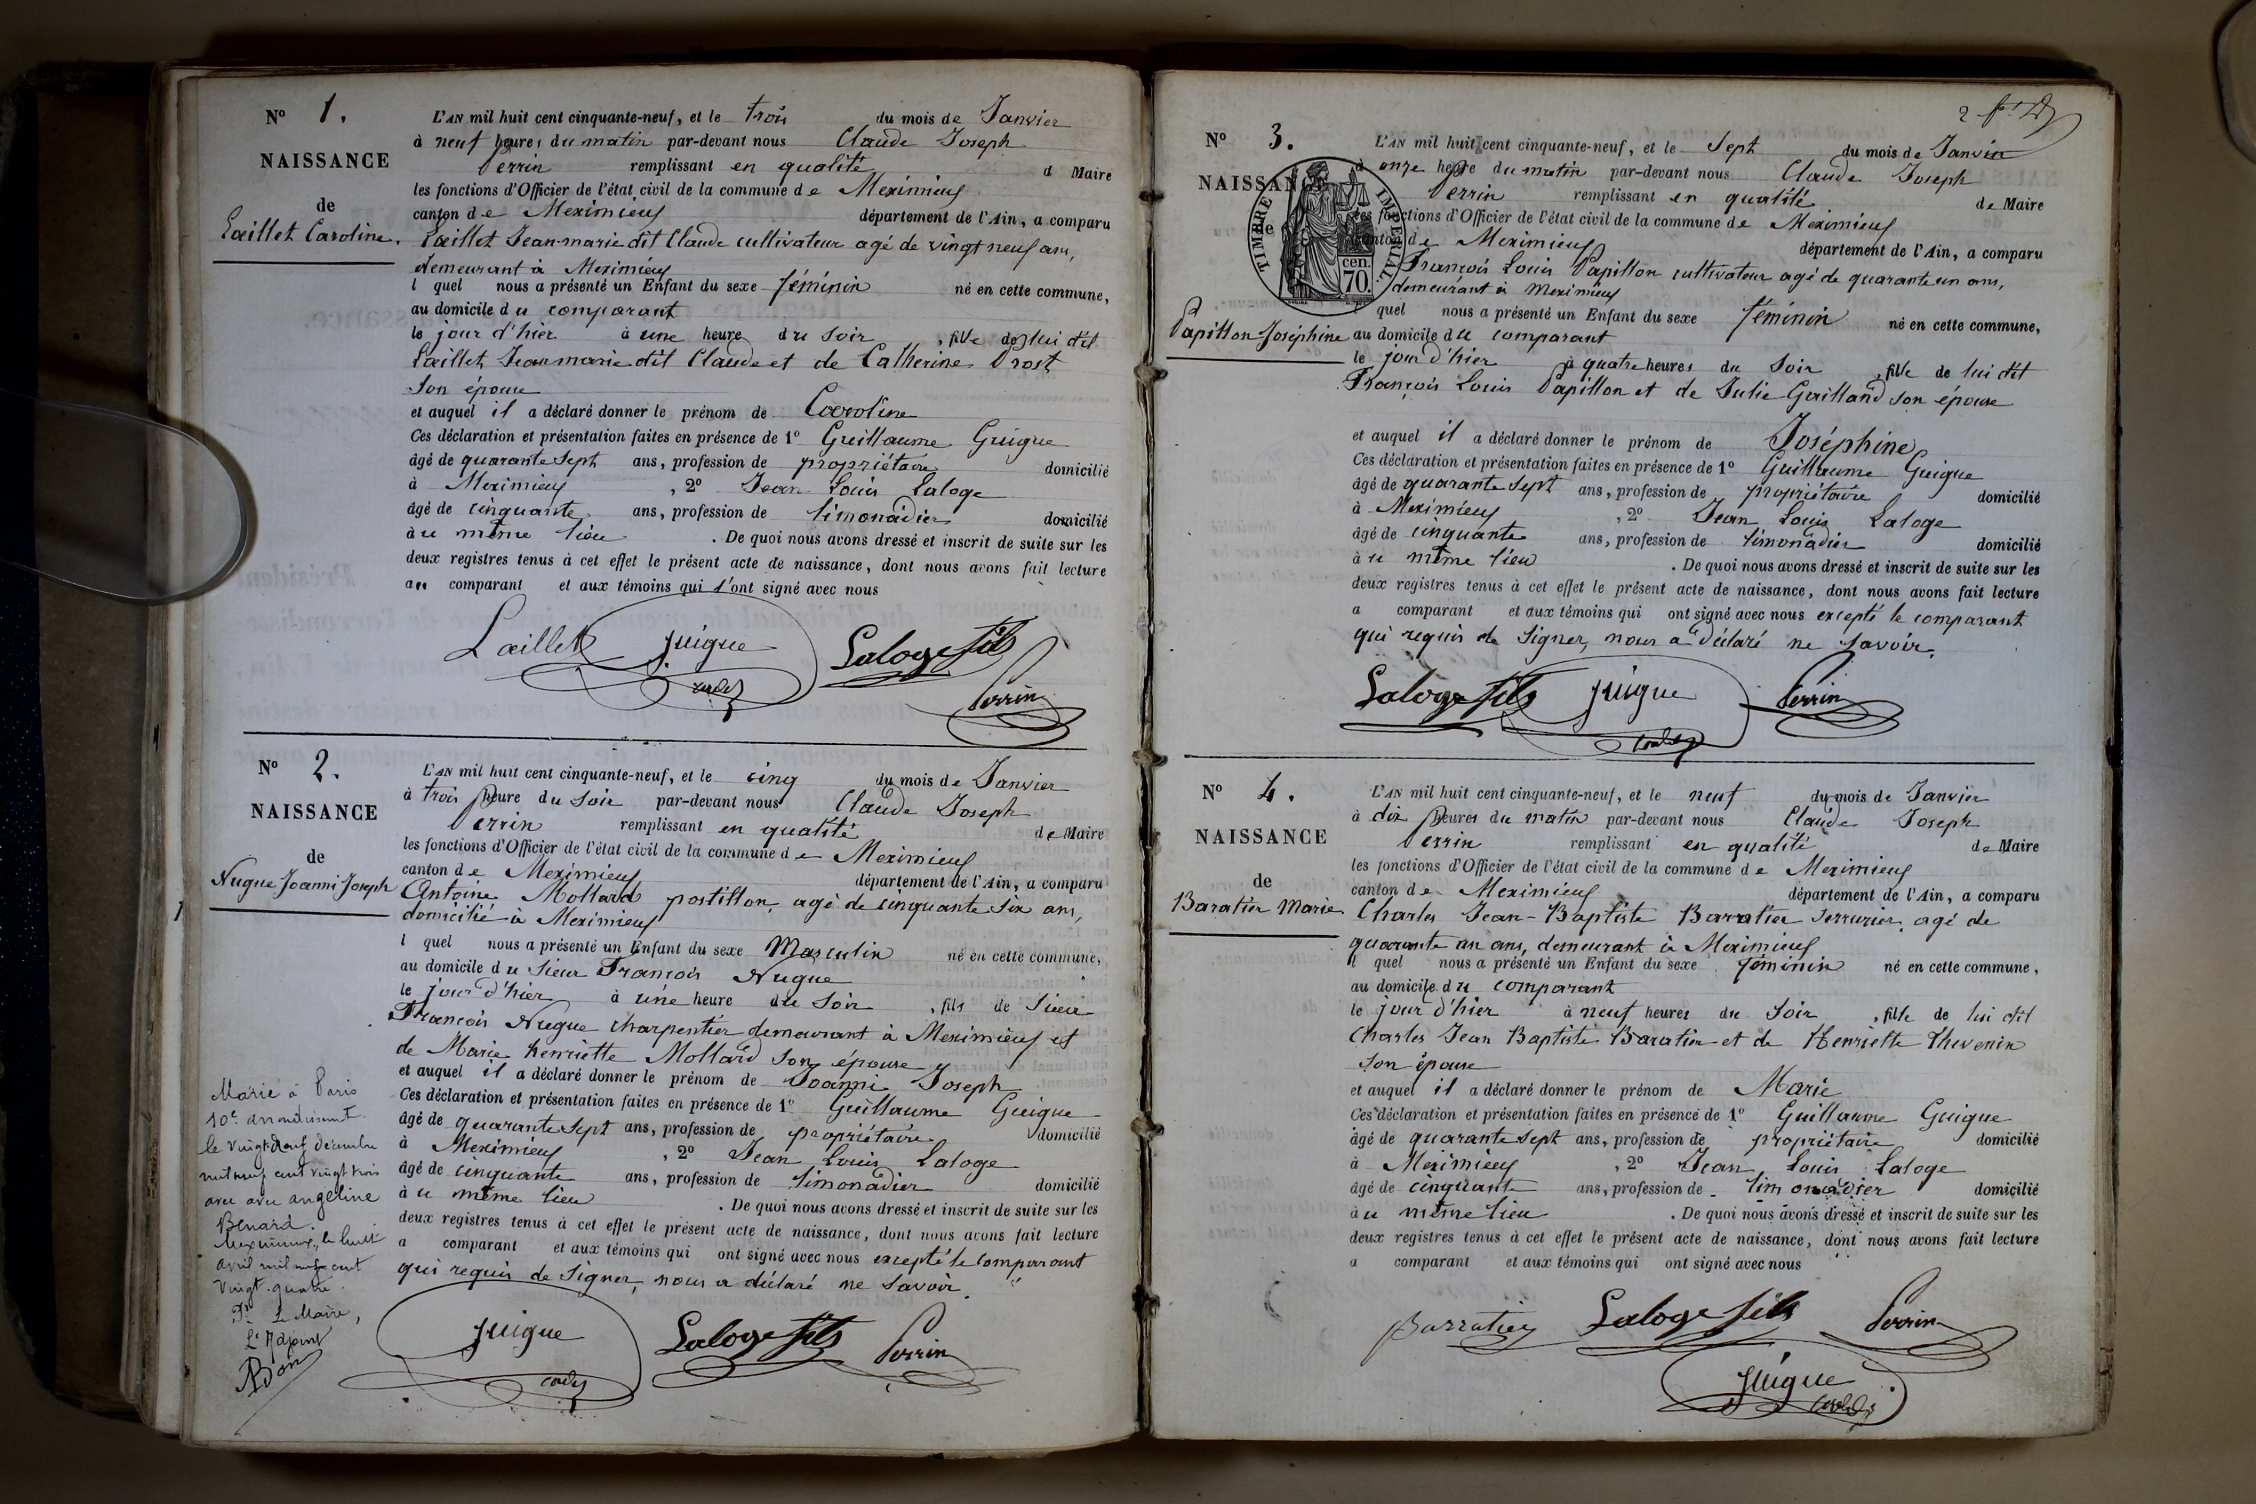 N° 1.
NAISSANCE
de
Laillet Caroline.
L'AN mil huit cent cinquante-neuf, et le trois du mois de Janvier
à neuf heures du matin par-devant nous Claude Joseph
Perrin remplissant en qualité d Maire
les fonctions d'Officier de l'état civil de la commune de Meximieux
canton de Meximieux département de l'Ain, a comparu
Laillet Jean-marie dit Claude cultivateur agé de vingt neuf ans,
demeurant à Meximieux
l quel nous a présenté un Enfant du sexe féminin né en cette commune,
au domicile du comparant
le jour d'hier à une heure du soir, fille de lui dit
Laillet Jean marie dit Claude et de Catherine Prost
son épouse
et auquel il a déclaré donner le prénom de Caroline
Ces déclaration et présentation faites en présence de 1° Guillaume Guigue
âgé de quarante sept ans, profession de propriétaire domicilié
à Meximieux, 2° Jean Louis Laloge
âgé de cinquante ans, profession de limonadier domicilié
à u même lieu. De quoi nous avons dressé et inscrit de suite sur les
deux registres tenus à cet effet le présent acte de naissance, dont nous avons fait lecture
au comparant et aux témoins qui l'ont signé avec nous
Laillet Guigue Laloge fils
Perrin
N° 2.
NAISSANCE
de
Nugue Joanni Joseph
L'AN mil huit cent cinquante-neuf, et le cinq du mois de Janvier
à trois heure du soir par-devant nous Claude Joseph
Perrin remplissant en qualité de Maire
les fonctions d'Officier de l'état civil de la commune de Meximieux
canton de Meximieux département de l'Ain, a comparu
Antoine Mollard postillon, agé de cinquante six ans,
domicilié à Meximieux
l quel nous a présenté un Enfant du sexe Masculin né en cette commune,
au domicile du sieur François Nugue
le jour d'hier à une heure du soir, fils de sieur
François Nugue charpentier demeurant à Meximieux et
de Marie henriette Mollard son épouse
et auquel il a déclaré donner le prénom de Joanni Joseph
Ces déclaration et présentation faites en présence de 1° Guillaume Guigue
âgé de quarante sept ans, profession de propriétaire domicilié
à Meximieux, 2° Jean Louis Laloge
âgé de cinquante ans, profession de limonadier domicilié
à u même lieu. De quoi nous avons dressé et inscrit de suite sur les
deux registres tenus à cet effet le présent acte de naissance, dont nous avons fait lecture
a comparant et aux témoins qui ont signé avec nous excepté le comparant
qui requis de signer, nous a déclaré ne savoir.
Guigue Laloge fils Perrin
Marié à Paris
10e arrondissement
le vingt décembre
mil neuf cent vingt trois
avec angeline
Benard.
Meximieux, le huit
avril mil neuf cent
vingt-quatre.
Pr Le Maire,
L'Adjoint
2
N° 3.
NAISSAN
Papillon Joséphine
TIMBRE IMPERIAL
cen.
70.
L'AN mil huit cent cinquante-neuf, et le Sept du mois de Janvier
à onze heure du matin par-devant nous Claude Joseph
Perrin remplissant en qualité de Maire
les fonctions d'Officier de l'état civil de la commune de Meximieux
canton de Meximieux département de l'Ain, a comparu
François Louis Papillon cultivateur agé de quarante un ans,
demeurant à Meximieux
quel nous a présenté un Enfant du sexe féminin né en cette commune,
au domicile du comparant
le jour d'hier à quatre heures du soir, fille de lui dit
François Louis Papillon et de Julie Guilland son épouse
et auquel il a déclaré donner le prénom de Joséphine
Ces déclaration et présentation faites en présence de 1° Guillaume Guigue
âgé de quarante sept ans, profession de propriétaire domicilié
à Meximieux, 2° Jean Louis Laloge
âgé de cinquante ans, profession de limonadier domicilié
à u même lieu. De quoi nous avons dressé et inscrit de suite sur les
deux registres tenus à cet effet le présent acte de naissance, dont nous avons fait lecture
a comparant et aux témoins qui ont signé avec nous excepté le comparant
qui requis de signer, nous a déclaré ne savoir.
Laloge fils Guigue Perrin
N° 4.
NAISSANCE
de
Baratier Marie
L'AN mil huit cent cinquante-neuf, et le neuf du mois de Janvier
à dix heures du matin par-devant nous Claude Joseph
Perrin remplissant en qualité de Maire
les fonctions d'Officier de l'état civil de la commune de Meximieux
canton de Meximieux département de l'Ain, a comparu
Charles Jean-Baptiste Barratier serrurier, agé de
quarante un ans, demeurant à Meximieux
l quel nous a présenté un Enfant du sexe féminin né en cette commune,
au domicile du comparant
le jour d'hier à neuf heures du soir, fille de lui dit
Charles Jean Baptiste Baratier et de Henriette Thevenin
son épouse
et auquel il a déclaré donner le prénom de Marie
Ces déclaration et présentation faites en présence de 1° Guillaume Guigue
âgé de quarante sept ans, profession de propriétaire domicilié
à Meximieux, 2° Jean Louis Laloge
âgé de cinquante ans, profession de limonadier domicilié
à u même lieu. De quoi nous avons dressé et inscrit de suite sur les
deux registres tenus à cet effet le présent acte de naissance, dont nous avons fait lecture
a comparant et aux témoins qui ont signé avec nous
Barratier Laloge fils Perrin
Guigue